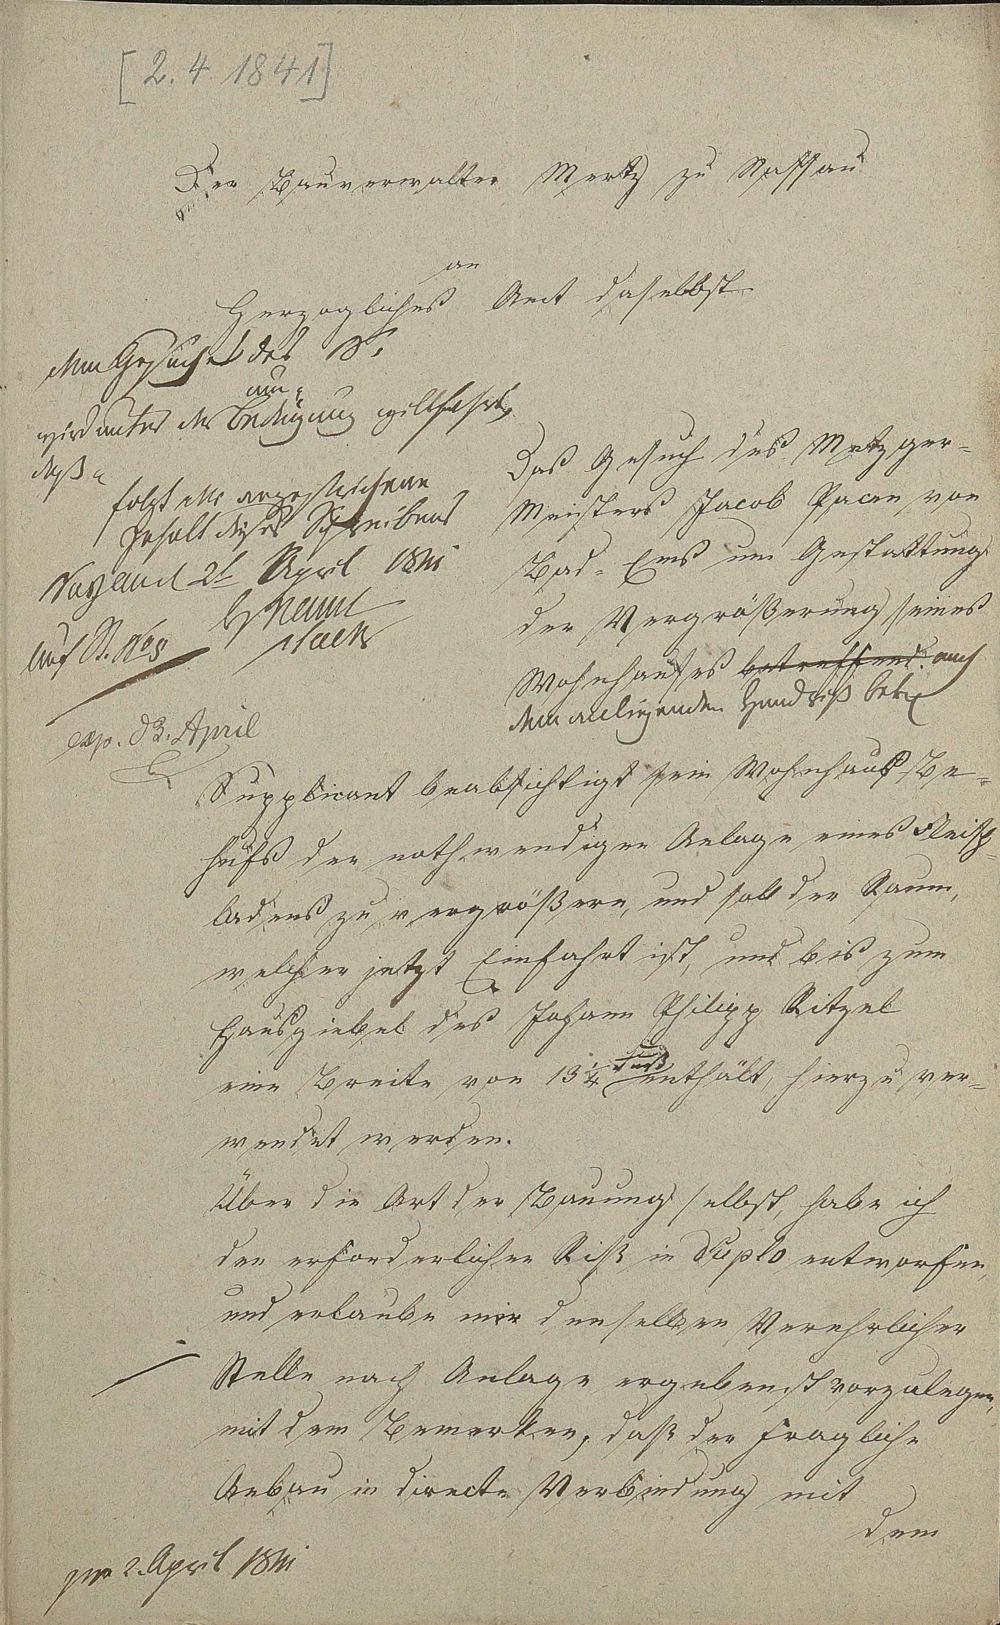 [2. 4. 1841]
Der Bauverwalter Mertz zu Nassau
an
Herzogliches Amt daselbst
Dem Gesuche des S.
wird unter der Bedingung willfahrt,
daß
folgt der vorgeschriebene
Inhalt dieses Schreibens
Nassau d 2t April 1841
auf St.
exp. d 3. April
Das Gesuch des Metzger-
Meisters Jacob Pacen von
Bad-Ems um Gestattung
der Vergrößerung seines
Wohnhauses betreffend. nach
dem anliegenden Handriß betr
Supplicant beabsichtigt sein Wohnhaus Be-
hufs der nothwendigen Anlage eines Fleisch-
ladens zu vergrößern, und soll der Raum,
welcher jetzt Einfahrt ist, und bis zum
Hausgiebel des Johann Philipp Ritzel
eine Breite von 13 1/4 Fuß enthält, hierzu ver-
wendet werden.
Über die Art der Bauung selbst, habe ich
den erforderlichen Riß in Duplo entworfen,
und erlaube mir denselben Verehrlicher
Stelle nach Anlage ergebenst vorzulegen,
mit dem Bemerken, daß der fragliche
Anbau in directe Verbindung mit
dem
pr 2. April 1841